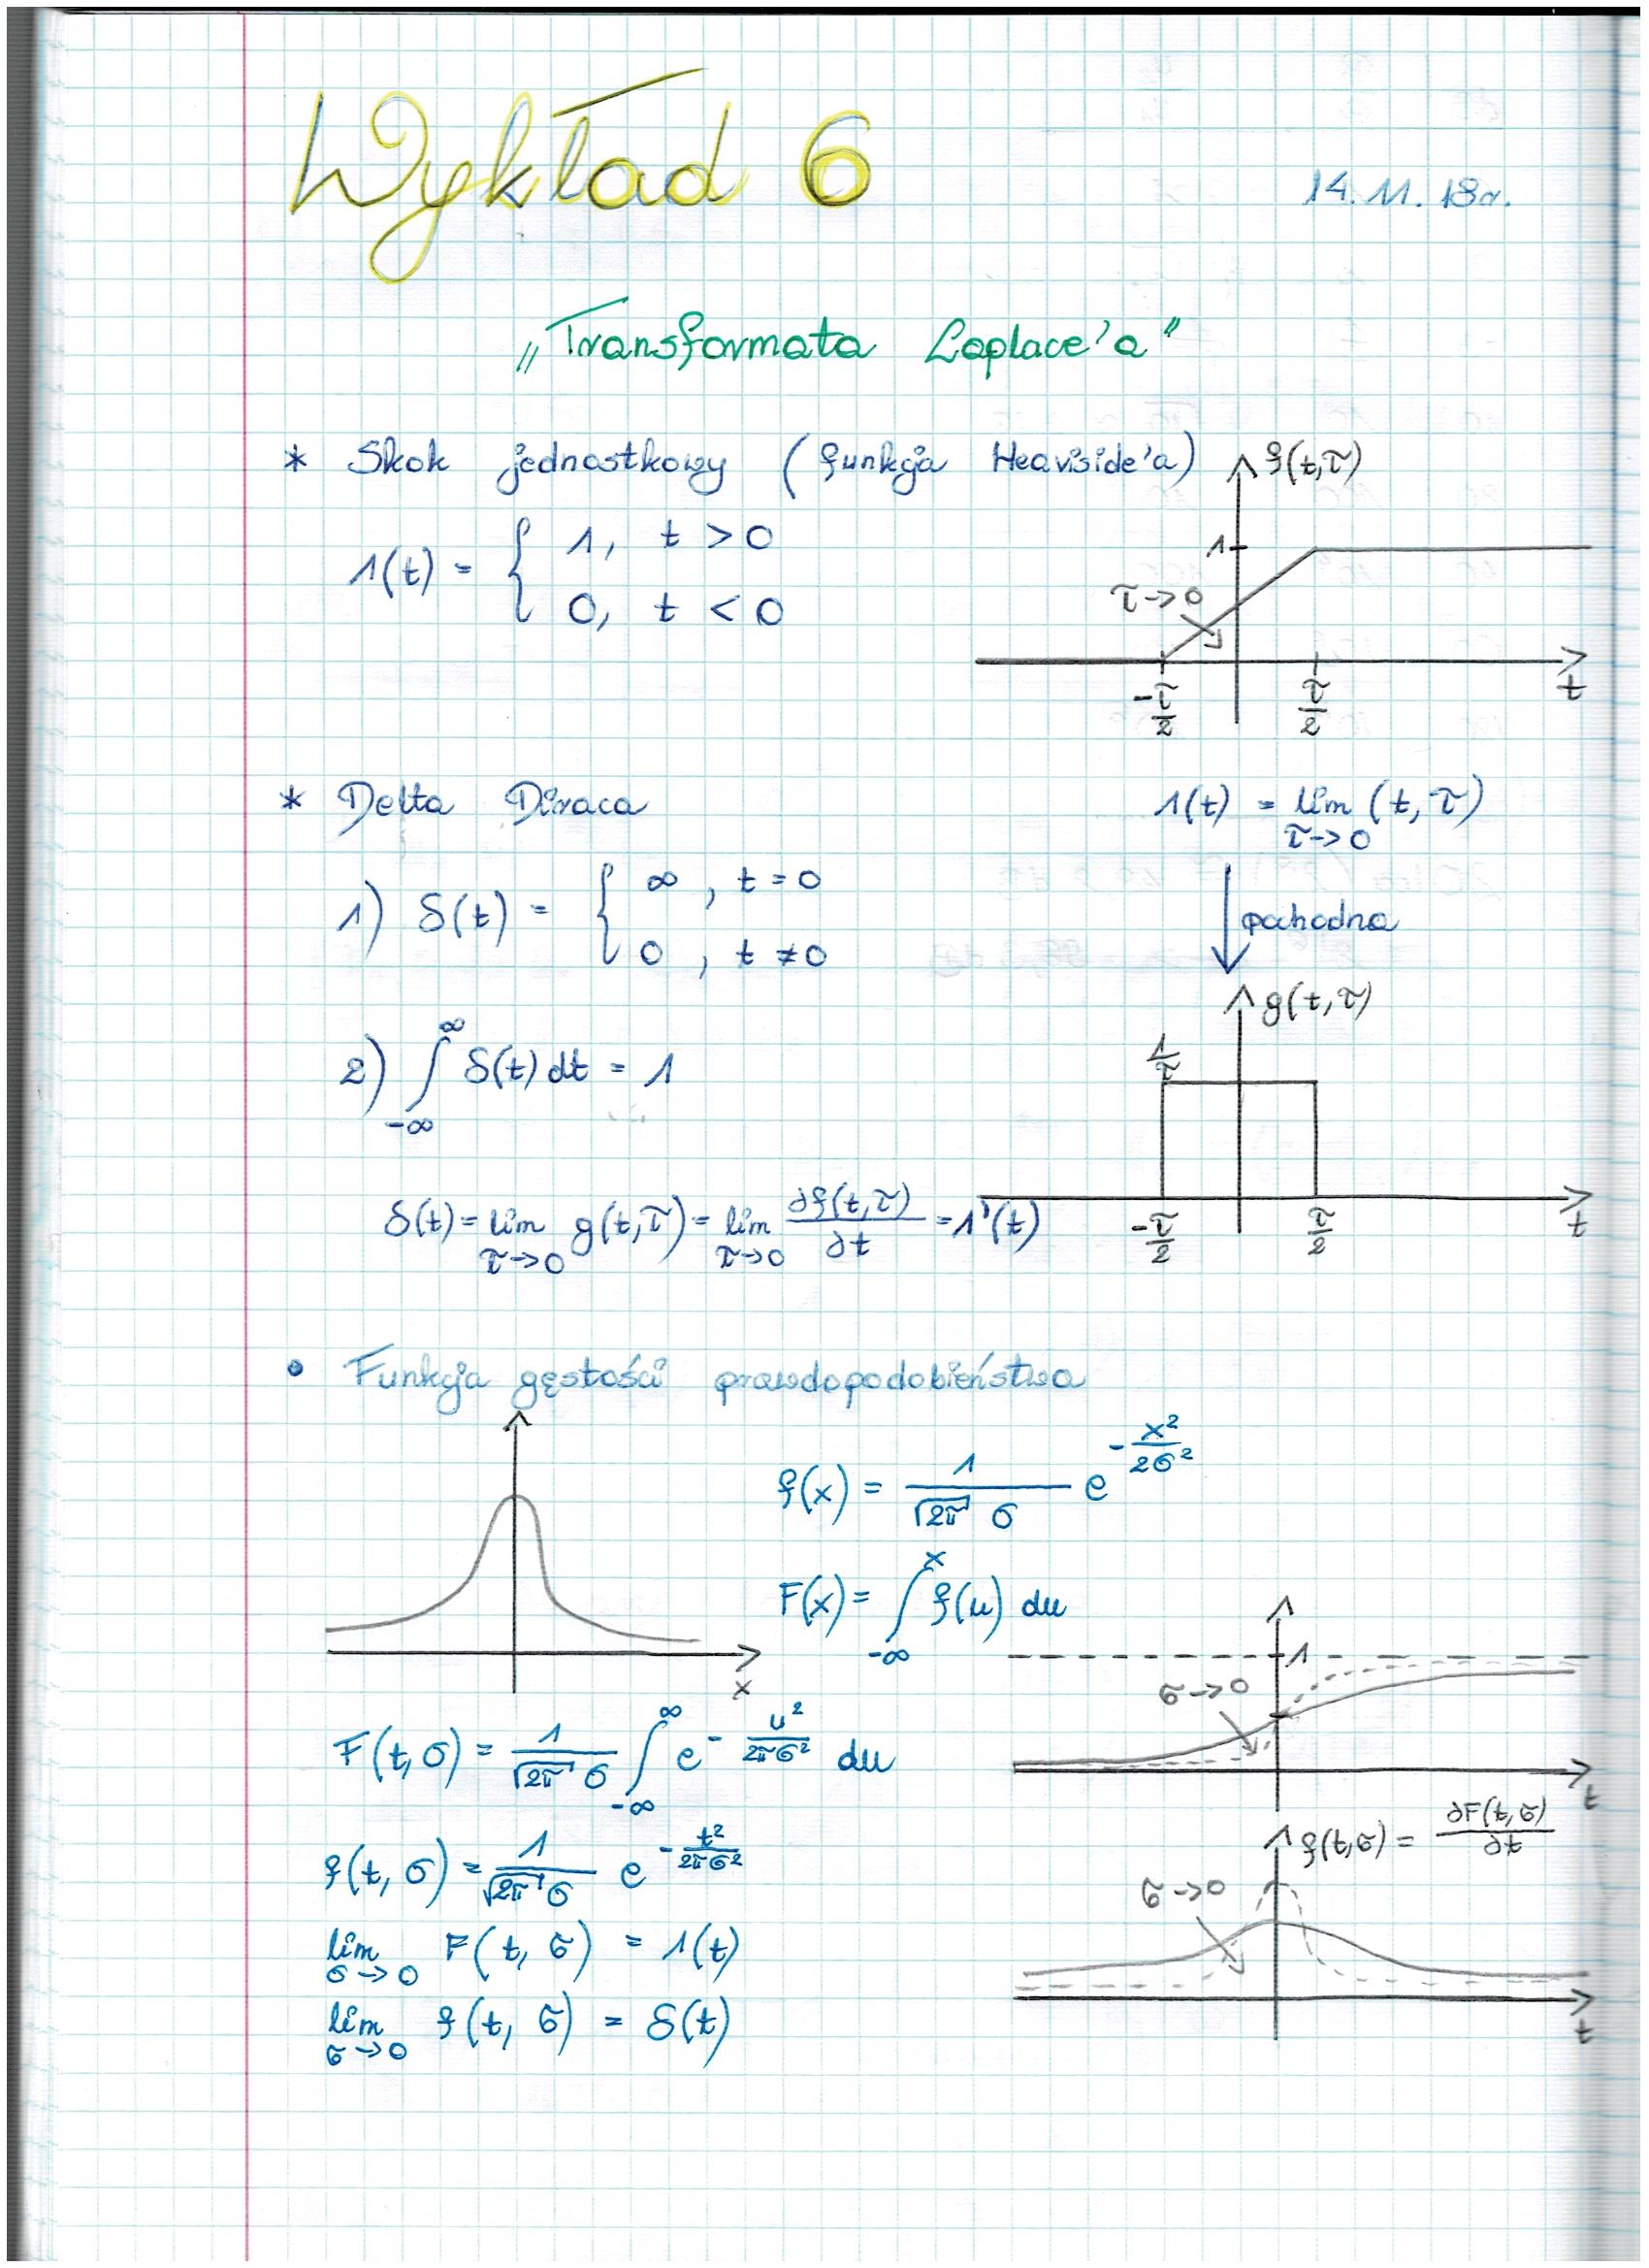 Wykład 6
14.11.18r.
„Transformata Laplace'a"
* Skok jednostkowy (funkcja Heaviside'a)
f(t,τ)
1(t) = { 1, t > 0
0, t < 0
1
τ→0
-τ/2
τ/2
t
* Delta Diraca
1(t) = lim (t, τ)
τ→0
1) δ(t) = { ∞, t = 0
0, t ≠ 0
pochodna
g(t,τ)
1/τ
2) ∫_{-∞}^{∞} δ(t) dt = 1
-τ/2
τ/2
t
δ(t) = lim_{τ→0} g(t,τ) = lim_{τ→0} ∂f(t,τ)/∂t = 1'(t)
• Funkcja gęstości prawdopodobieństwa
f(x) = 1/(√2π σ) e^{-x²/2σ²}
x
F(x) = ∫_{-∞}^{x} f(u) du
1
σ→0
t
F(t,σ) = 1/(√2π σ) ∫_{-∞}^{∞} e^{-u²/2πσ²} du
f(t,σ) = ∂F(t,σ)/∂t
σ→0
t
f(t,σ) = 1/(√2π σ) e^{-t²/2πσ²}
lim_{σ→0} F(t, σ) = 1(t)
lim_{σ→0} f(t, σ) = δ(t)